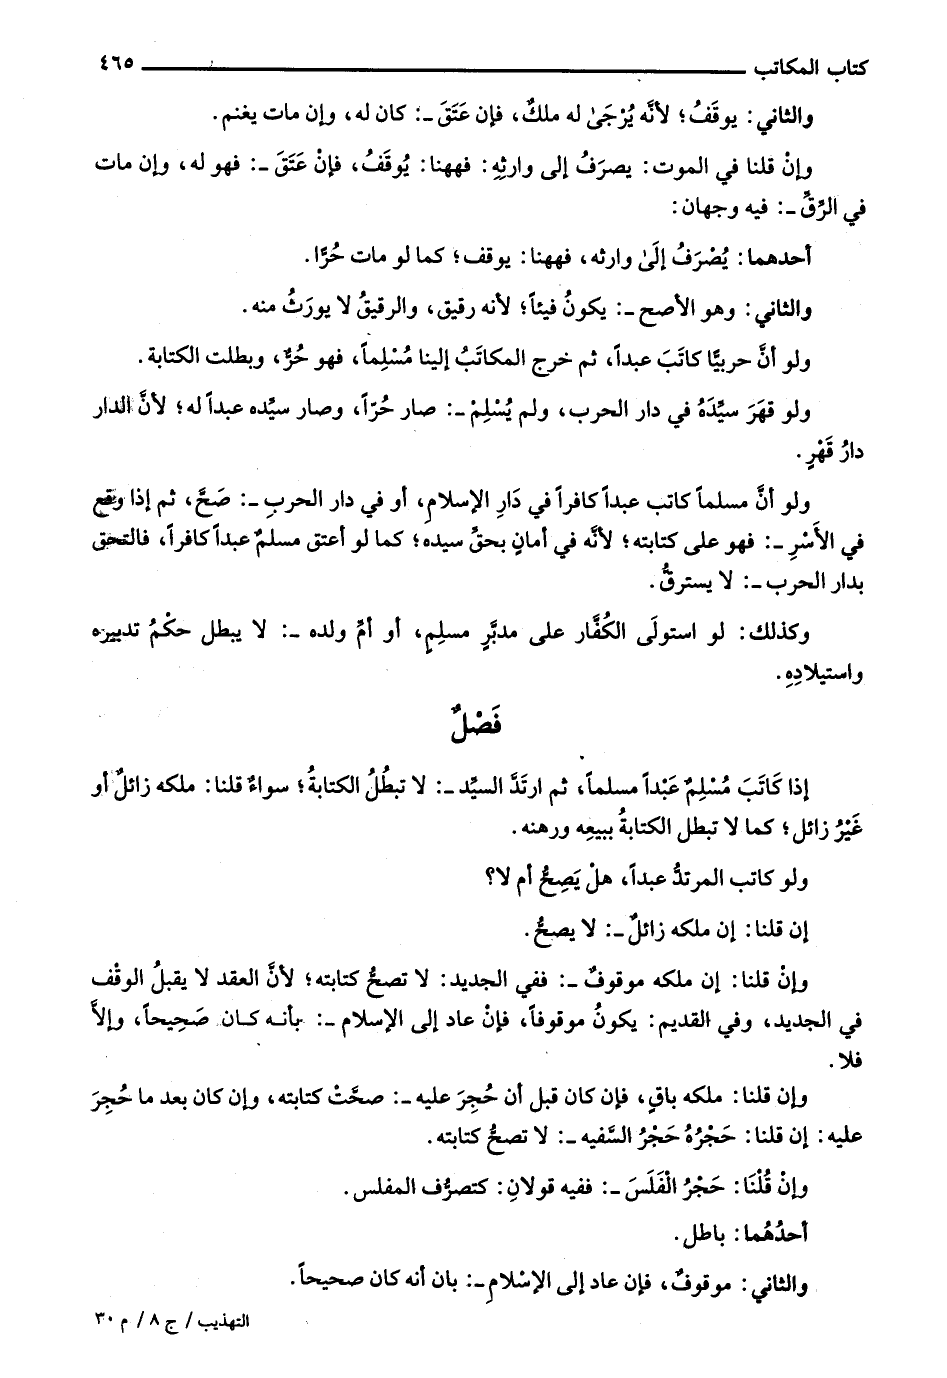 كتاب المكاتب ٤٦٥
والثاني: يوقَفُ؛ لأنَّه يُرْجَىٰ له ملكٌ، فإن عَتَقَ -: كان له، وإن مات يغنم.
وإنْ قلنا في الموت: يصرَفُ إلى وارثِهِ: فههنا: يُوقَفُ، فإنْ عَتَقَ -: فهو له، وإن مات
في الرِّقِّ -: فيه وجهان:
أحدهما: يُصْرَفُ إلَىٰ وارثه، فههنا: يوقف؛ كما لو مات حُرًّا.
والثاني: وهو الأصح -: يكونُ فيئاً؛ لأنه رقيق، والرقيقُ لا يورَثُ منه.
ولو أنَّ حربيًّا كاتَبَ عبداً، ثم خرج المكاتَبُ إلينا مُسْلِماً، فهو حُرٌّ، وبطلت الكتابة.
ولو قهَرَ سيِّدَهُ في دار الحرب، ولم يُسْلِمْ -: صار حُرّاً، وصار سيِّده عبداً له؛ لأنَّ الدار
دارُ قَهْرٍ.
ولو أنَّ مسلماً كاتب عبداً كافراً في دَارِ الإسلامِ، أو في دار الحربِ -: صَحَّ، ثم إذا وقع
في الأَسْرِ -: فهو على كتابته؛ لأنَّه في أمانٍ بحقِّ سيده؛ كما لو أعتق مسلمٌ عبداً كافراً، فالتحق
بدار الحرب -: لا يسترقُّ.
وكذلك: لو استولَى الكُفَّار على مدبَّرٍ مسلِمٍ، أو أمِّ ولده -: لا يبطل حكْمُ تدبيره
واستيلادِهِ.
فَصْلٌ
إذا كَاتَبَ مُسْلِمٌ عَبْداً مسلماً، ثم ارتَدَّ السيِّد -: لا تبطُلُ الكتابةُ؛ سواءٌ قلنا: ملكه زائلٌ أو
غَيْرُ زائل؛ كما لا تبطل الكتابةُ ببيعِه ورهنه.
ولو كاتب المرتدُّ عبداً، هلْ يَصِحُّ أم لا؟
إن قلنا: إن ملكه زائلٌ -: لا يصحُّ.
وإنْ قلنا: إن ملكه موقوفٌ -: ففي الجديد: لا تصحُّ كتابته؛ لأنَّ العقد لا يقبلُ الوقْف
في الجديد، وفي القديم: يكونُ موقوفاً، فإنْ عاد إلى الإسلام -: بأنه كان صَحِيحاً، وإلاَّ
فلا.
وإن قلنا: ملكه باقٍ، فإن كان قبل أن حُجِرَ عليه -: صحَّتْ كتابته، وإن كان بعد ما حُجِرَ
عليه: إن قلنا: حَجْرُهُ حَجْرُ السَّفيه -: لا تصحُّ كتابته.
وإنْ قُلْنَا: حَجْرُ الْفَلَسَ -: ففيه قولانِ: كتصرُّف المفلس.
أحدُهُما: باطل.
والثاني: موقوفٌ، فإن عاد إلى الإسْلامِ-: بان أنه كان صحيحاً.
التهذيب / ج ٨ / م ٣٠